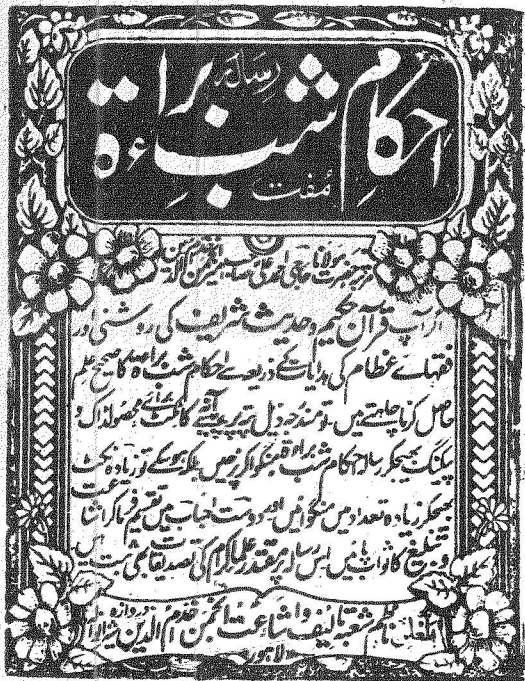 رسالہ
احکام شب براءۃ
مفت
حضرت مولانا احمد علی صاحب امیر انجمن خدام الدین
اگر آپ قرآن حکیم و حدیث شریف کی روشنی اور
فقہائے عظام کی ہدایات کے ذریعے احکام شب براءۃ کا صحیح علم
حاصل کرنا چاہتے ہیں۔ تو مندرجہ ذیل پتہ پر پیسے کا ٹکٹ برائے محصولڈاک و
پیکنگ بھیجکر رسالہ احکام شب براءۃ منگوا کر پڑھیں بلکہ ہوسکے تو زیادہ ٹکٹ
بھیجکر زیادہ تعداد میں منگوائیں اور دوست احباب میں تقسیم فرما کر اشاعت
و تبلیغ کا ثواب پائیں اس رسالہ پر مقتدر علما کرام کی تصدیقات بھی ثبت ہیں
المعلن ناظم شعبہ تالیف و اشاعت انجمن خدام الدین دروازہ شیرانوالہ
لاہور